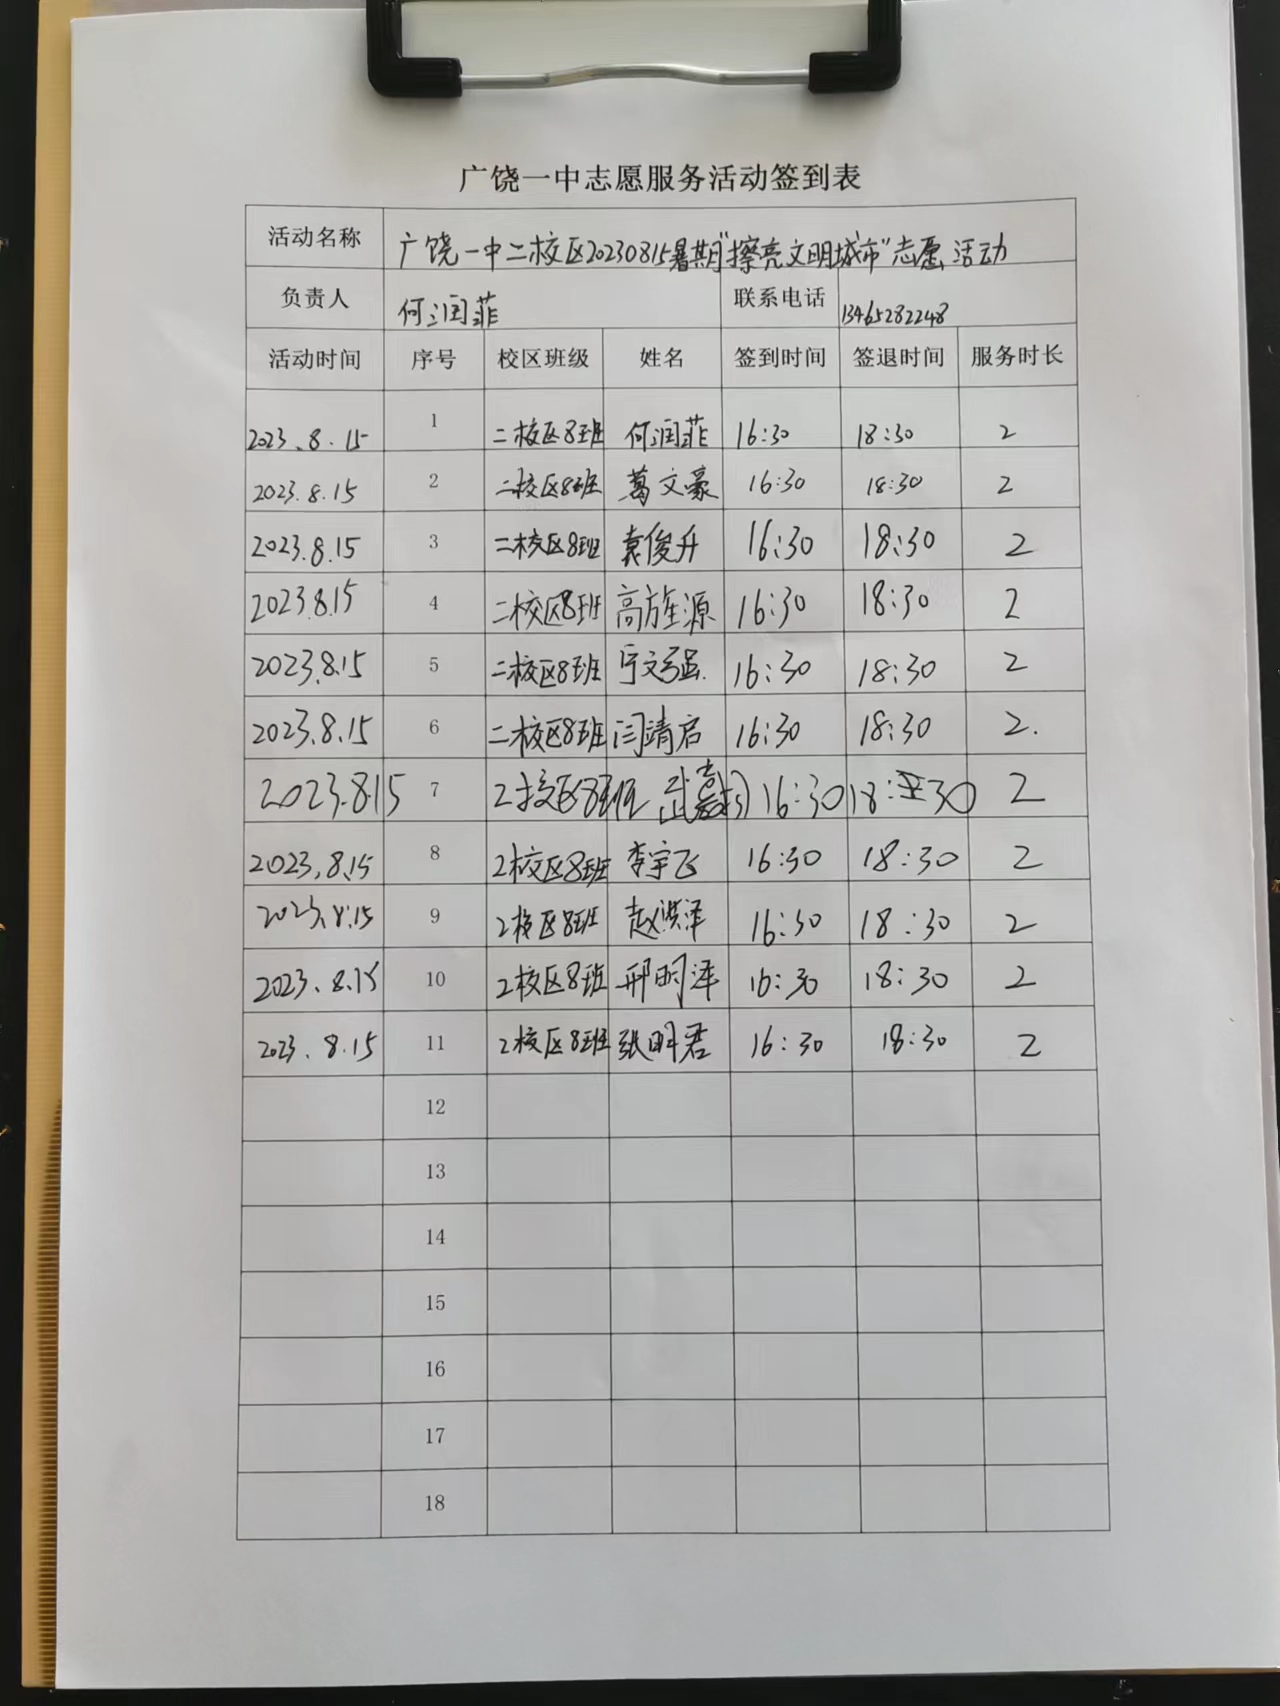 广饶一中志愿服务活动签到表
活动名称 广饶一中二校区20230815暑期"擦亮文明城市"志愿活动
负责人 何润菲 联系电话 13465282248
活动时间 序号 校区班级 姓名 签到时间 签退时间 服务时长
2023.8.15 1 二校区8班 何润菲 16:30 18:30 2
2023.8.15 2 二校区8班 葛文豪 16:30 18:30 2
2023.8.15 3 二校区8班 袁俊升 16:30 18:30 2
2023.8.15 4 二校区8班 高旌源 16:30 18:30 2
2023.8.15 5 二校区8班 宁文强 16:30 18:30 2
2023.8.15 6 二校区8班 闫靖启 16:30 18:30 2.
2023.8.15 7 2校区8班 武 16:30 18:30 2
2023.8.15 8 2校区8班 李宇飞 16:30 18:30 2
2023.8.15 9 2校区8班 赵洪泽 16:30 18:30 2
2023.8.15 10 2校区8班 邢明泽 16:30 18:30 2
2023.8.15 11 2校区8班 张明君 16:30 18:30 2
12
13
14
15
16
17
18